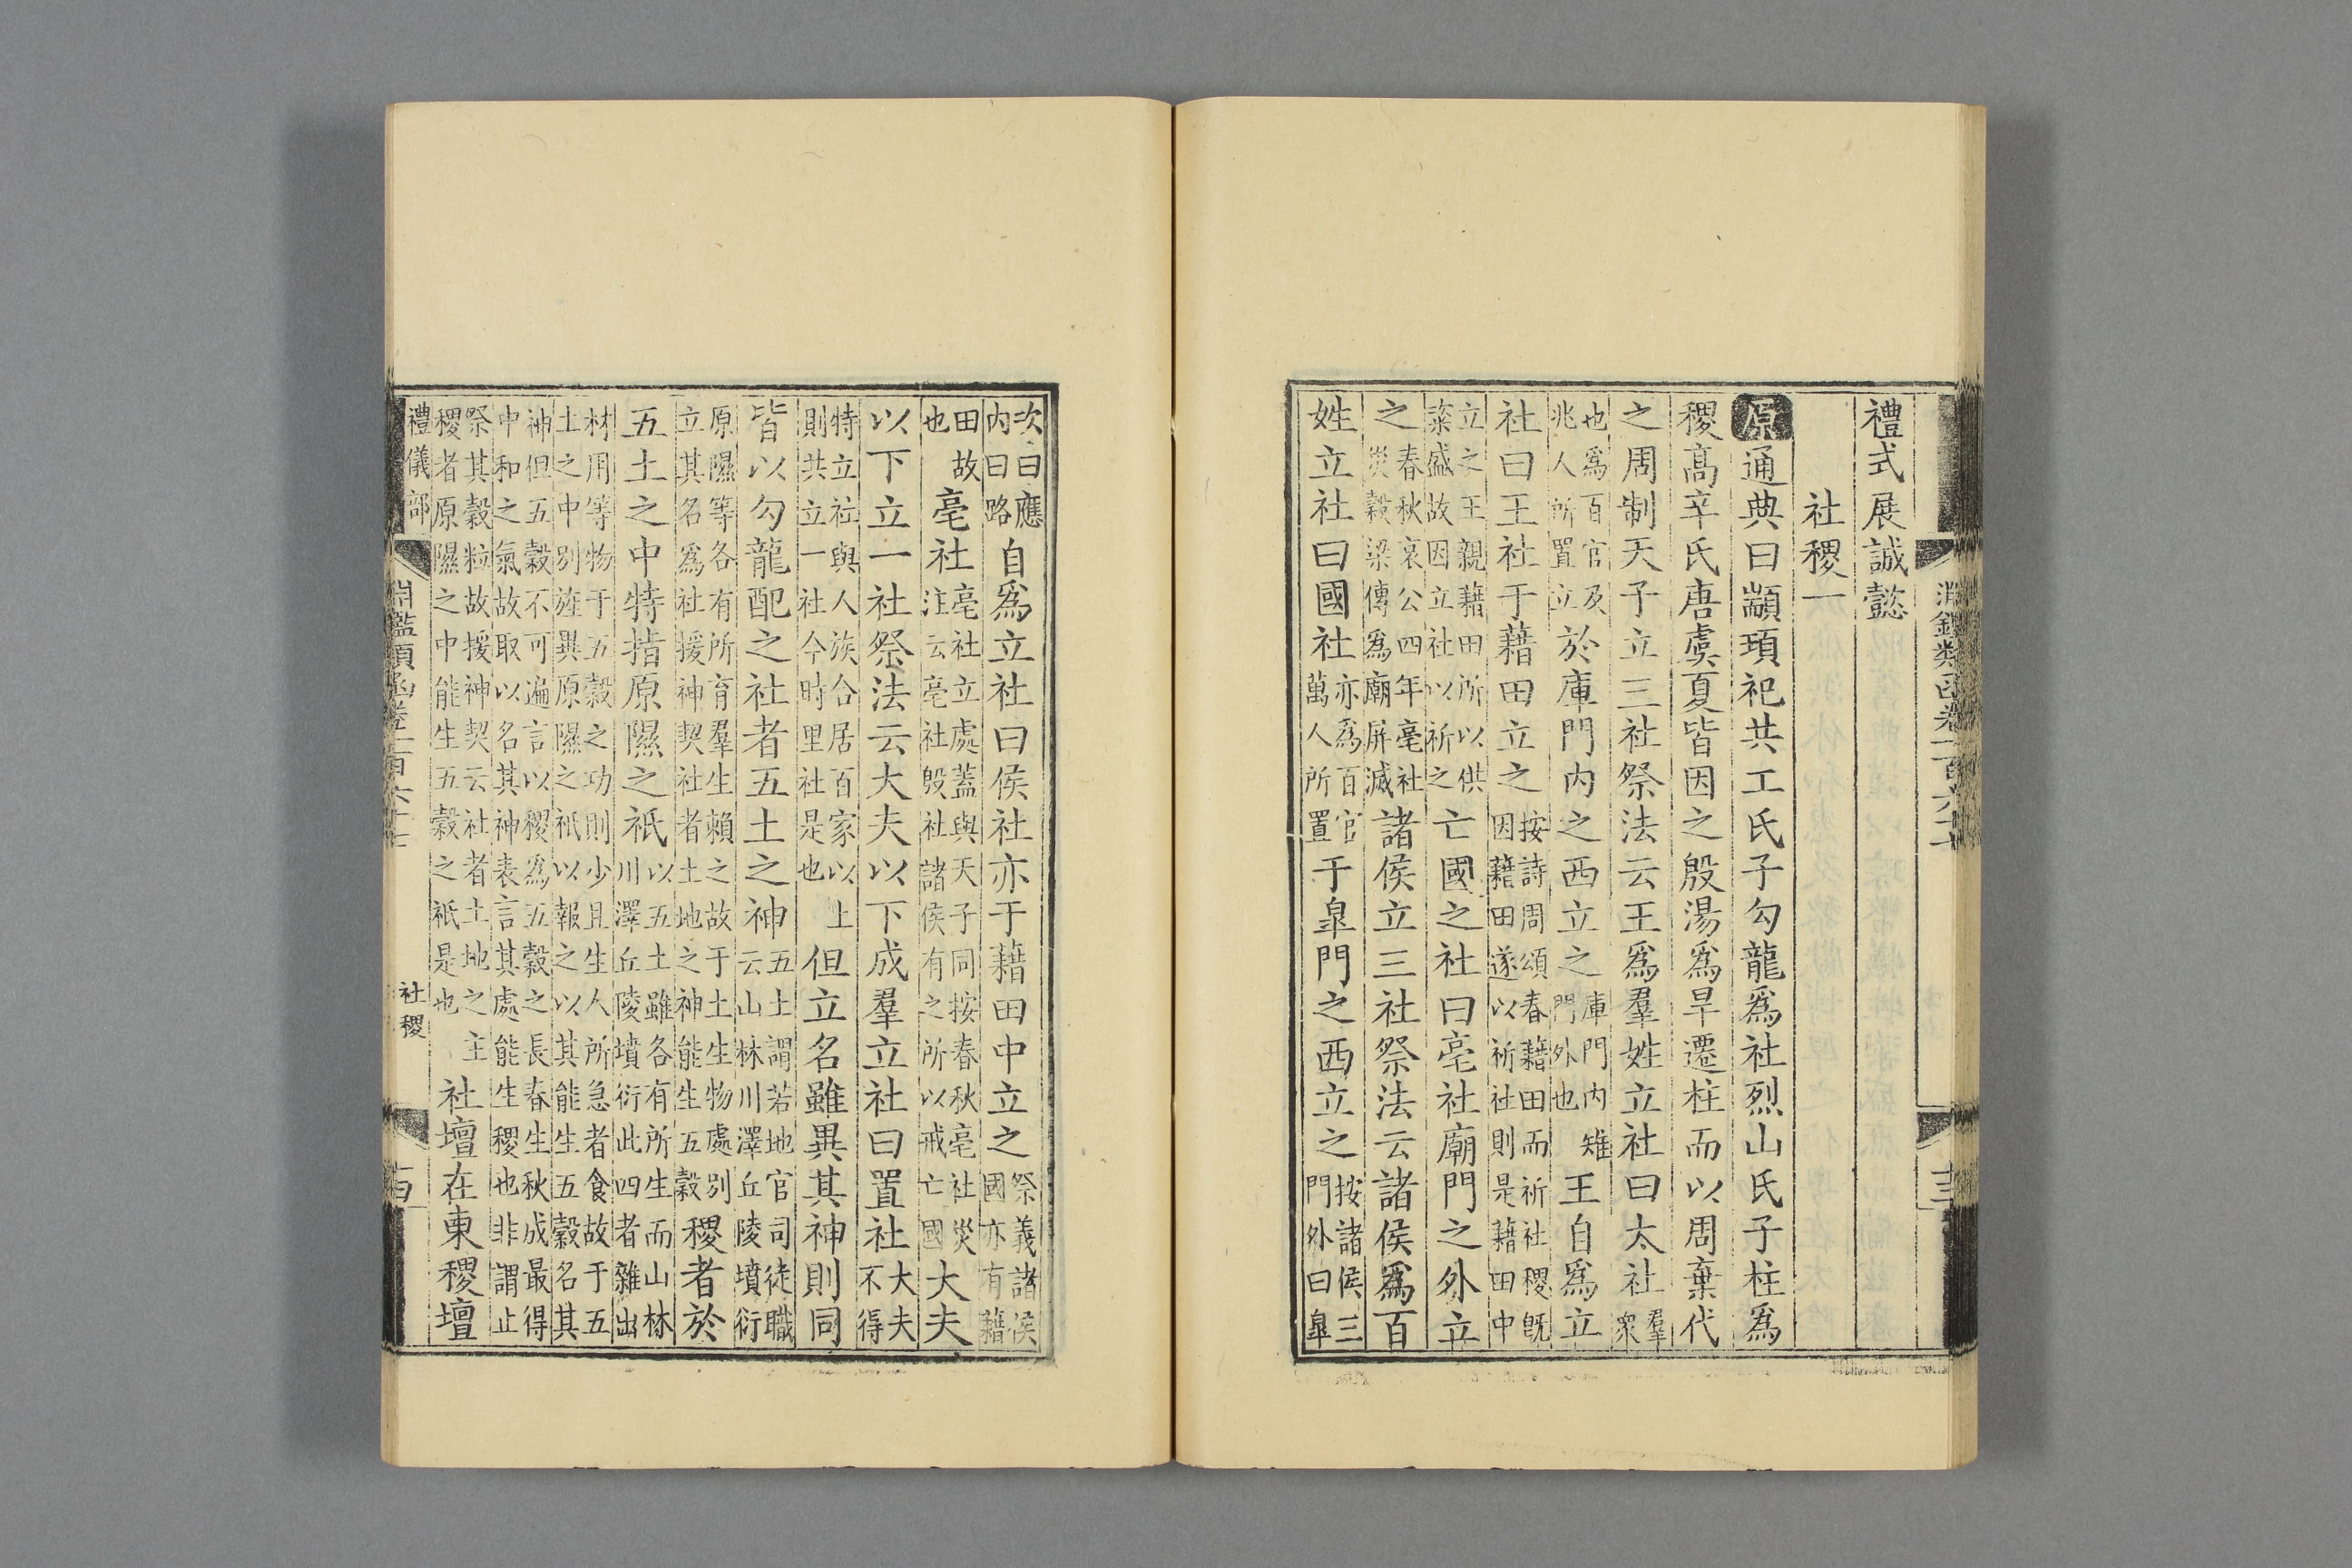 淵鑑類函卷一百六十七 十三
禮式展誠懿
社稷一
原通典曰顓頊祀共工氏子勾龍爲社烈山氏子柱爲
稷高辛氏唐虞夏皆因之殷湯爲旱遷柱而以周棄代
之周制天子立三社祭法云王爲羣姓立社曰太社羣衆
也爲百官及兆人所置立於庫門内之西立之庫門内雉門外也王自爲立
社曰王社于藉田立之按詩周頌春藉田而祈社稷旣因藉田遂以祈社則是藉田中
立之王親藉田所以供粢盛故因立社以祈之亡國之社曰亳社廟門之外立
之春秋哀公四年亳社災穀梁傳爲廟屏滅諸侯立三社祭法云諸侯爲百
姓立社曰國社亦爲百官萬人所置于臯門之西立之按諸侯三門外曰臯
次曰應内曰路自爲立社曰侯社亦于藉田中立之祭義諸侯國亦有藉
田故也亳社亳社立處蓋與天子同按春秋亳社災注云亳社殷社諸侯有之所以戒亡國大夫
以下立一社祭法云大夫以下成羣立社曰置社大夫不得
特立社與人族合居百家以上則共立一社今時里社是也但立名雖異其神則同
皆以勾龍配之社者五土之神五土謂若地官司徒職云山林川澤丘陵墳衍
原隰等各有所育羣生賴之故于土生物處別立其名爲社援神契社者土地之神能生五穀稷者於
五土之中特指原隰之祇以五土雖各有所生而山林川澤丘陵墳衍此四者雜出
材用等物于五穀之功則少且生人所急者食故于五土之中別旌異原隰之祇以報之以其能生五穀名其
神但五穀不可遍言以稷爲五穀之長春生秋成最得中和之氣故取以名其神表言其處能生稷也非謂止
祭其穀粒故援神契云社者土地之主稷者原隰之中能生五穀之祇是也社壇在東稷壇
禮儀部 淵鑑類函卷一百六十七 社稷 十四